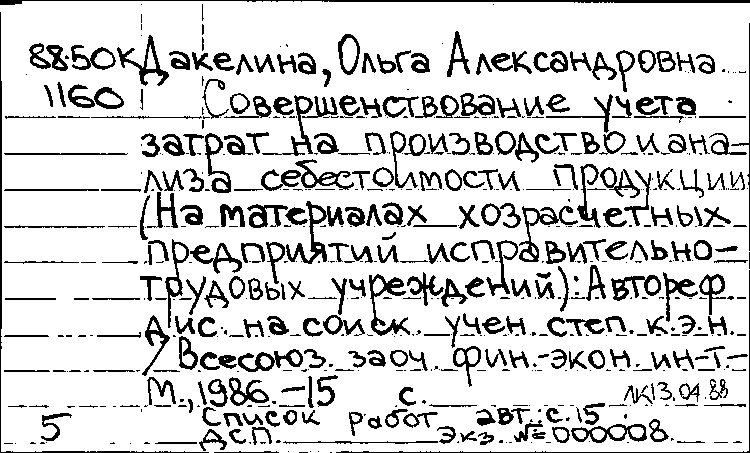 88-50К Дакелина, Ольга Александровна
1160 Совершенствование учета
затрат на производство и ана-
лиза себестоимости продукции
(На материалах хозрасчетных
предприятий исправительно-
трудовых учреждений): Автореф
дис. на соиск. учен. степ. к.э.н.
/ Всесоюз. заоч. фин.-экон. ин-т.-
М., 1986.-15 с. ЛК13.04.88
Список работ авт.: с. 15
5 ДСП. Экз. №=000008